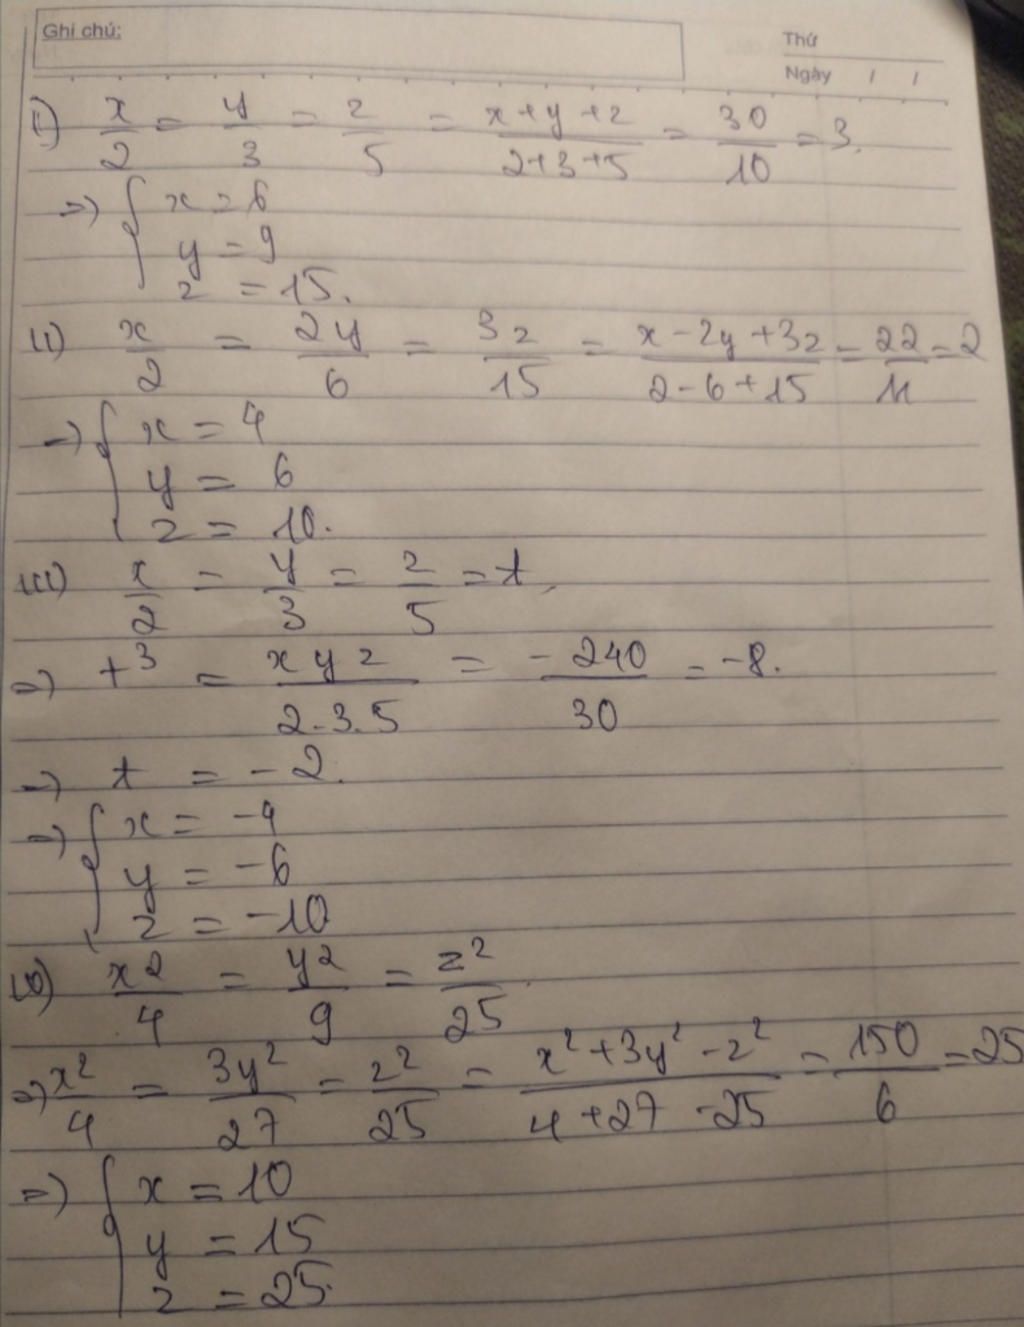 Ghi chú:
Thứ
Ngày / /
i) x/2 = y/3 = z/5 = (x+y+z)/(2+3+5) = 30/10 = 3.
=> { x = 6
y = 9
z = 15.
ii) x/2 = 2y/6 = 3z/15 = (x-2y+3z)/(2-6+15) = 22/11 = 2
=> { x = 4
y = 6
z = 10.
iii) x/2 = y/3 = z/5 = t.
=> t³ = xyz/(2.3.5) = -240/30 = -8.
=> t = -2.
=> { x = -4
y = -6
z = -10
iv) x²/4 = y²/9 = z²/25
=> x²/4 = 3y²/27 = z²/25 = (x²+3y²-z²)/(4+27-25) = 150/6 = 25
=> { x = 10
y = 15
z = 25.